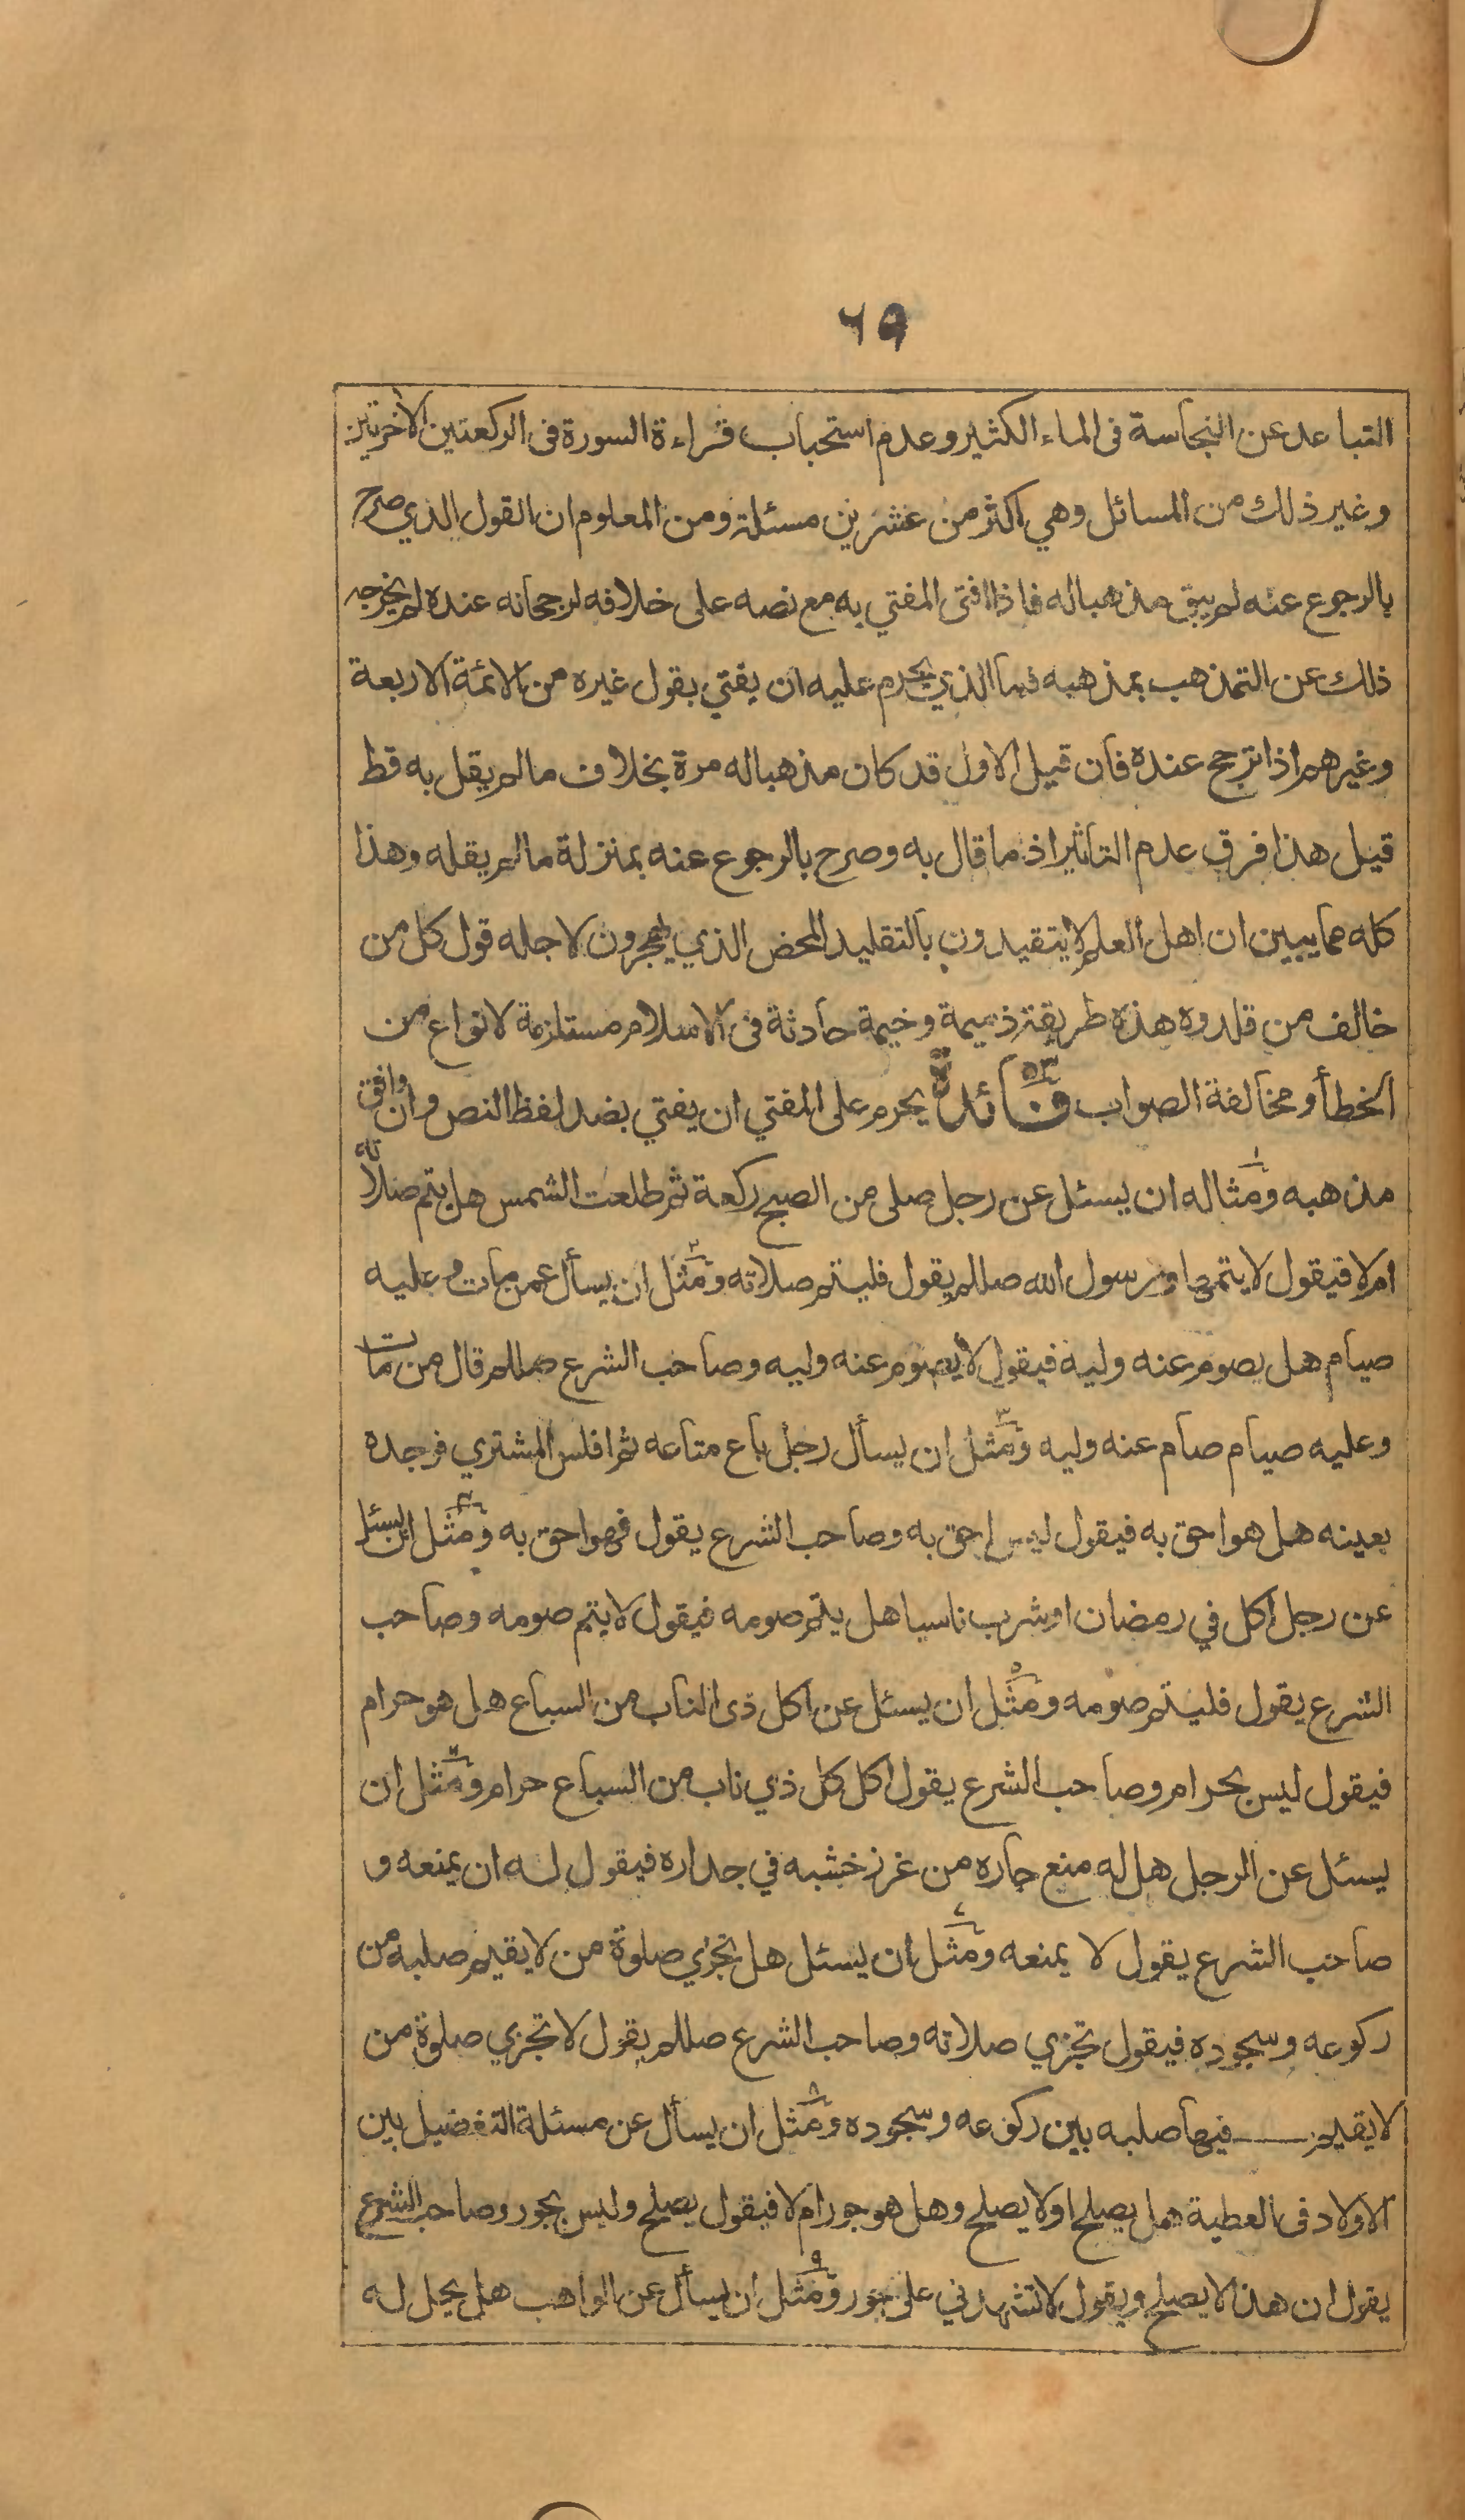 ٦٩
التباعد عن النجاسة فى الماء الكثير وعدم استحباب قراءة السورة فى الركعتين الأخرتين
وغير ذلك من المسائل وهي أكثر من عشرين مسئلة ومن المعلوم ان القول الذي صرح
بالرجوع عنه لم يبق مذهبا له فاذا افتى المفتي به مع نصه على خلافه لرجحانه عنده لم يخرجه
ذلك عن التمذهب بمذهبه فما الذي يحرم عليه ان يفتي بقول غيره من الائمة الاربعة
وغيرهم اذا ترجح عنده فان قيل الاول قد كان مذهبا له مرة بخلاف ما لم يقل به قط
قيل هذا فرق عدم التأثير اذ ما قال به وصرح بالرجوع عنه بمنزلة ما لم يقله وهذا
كله مما يبين ان اهل العلم لا يتقيدون بالتقليد المحض الذي يهجرون لاجله قول كل من
خالف من قلدوه هذه طريقة ذميمة وخيمة حادثة فى الاسلام مستلزمة لانواع من
الخطأ ومخالفة الصواب فائدة ٥٣ يحرم على المفتي ان يفتي بضد لفظ النص وان وافق
مذهبه ومثاله ١ ان يسئل عن رجل صلى من الصبح ركعة ثم طلعت الشمس هل يتم صلاته
ام لا فيقول لا يتمها ورسول الله صللم يقول فليتم صلاته ومثل ٢ ان يسأل عمن مات وعليه
صيام هل يصوم عنه وليه فيقول لا يصوم عنه وليه وصاحب الشرع صللم قال من مات
وعليه صيام صام عنه وليه ومثل ٣ ان يسأل رجل باع متاعه ثم افلس المشتري فوجده
بعينه هل هو احق به فيقول ليس احق به وصاحب الشرع يقول فهو احق به ومثل ٤ ان يسئل
عن رجل اكل في رمضان او شرب ناسيا هل يتم صومه فيقول لا يتم صومه وصاحب
الشرع يقول فليتم صومه ومثل ٥ ان يسئل عن اكل ذى الناب من السباع هل هو حرام
فيقول ليس بحرام وصاحب الشرع يقول اكل كل ذي ناب من السباع حرام ومثل ٦ ان
يسئل عن الرجل هل له منع جاره من غرز خشبه في جداره فيقول له ان يمنعه و
صاحب الشرع يقول لا يمنعه ومثل ٧ ان يسئل هل تجزي صلوة من لا يقيم صلبه من
ركوعه وسجوده فيقول تجزي صلاته وصاحب الشرع صللم يقول لا تجزي صلوة من
لا يقيم فيها صلبه بين ركوعه وسجوده ومثل ٨ ان يسأل عن مسئلة التفضيل بين
الاولاد فى العطية هل يصلح او لا يصلح وهل هو جور ام لا فيقول يصلح وليس بجور وصاحب الشرع
يقول ان هذا لا يصلح ويقول لا تشهدني على جور ومثل ٩ ان يسأل عن الواهب هل يحل له